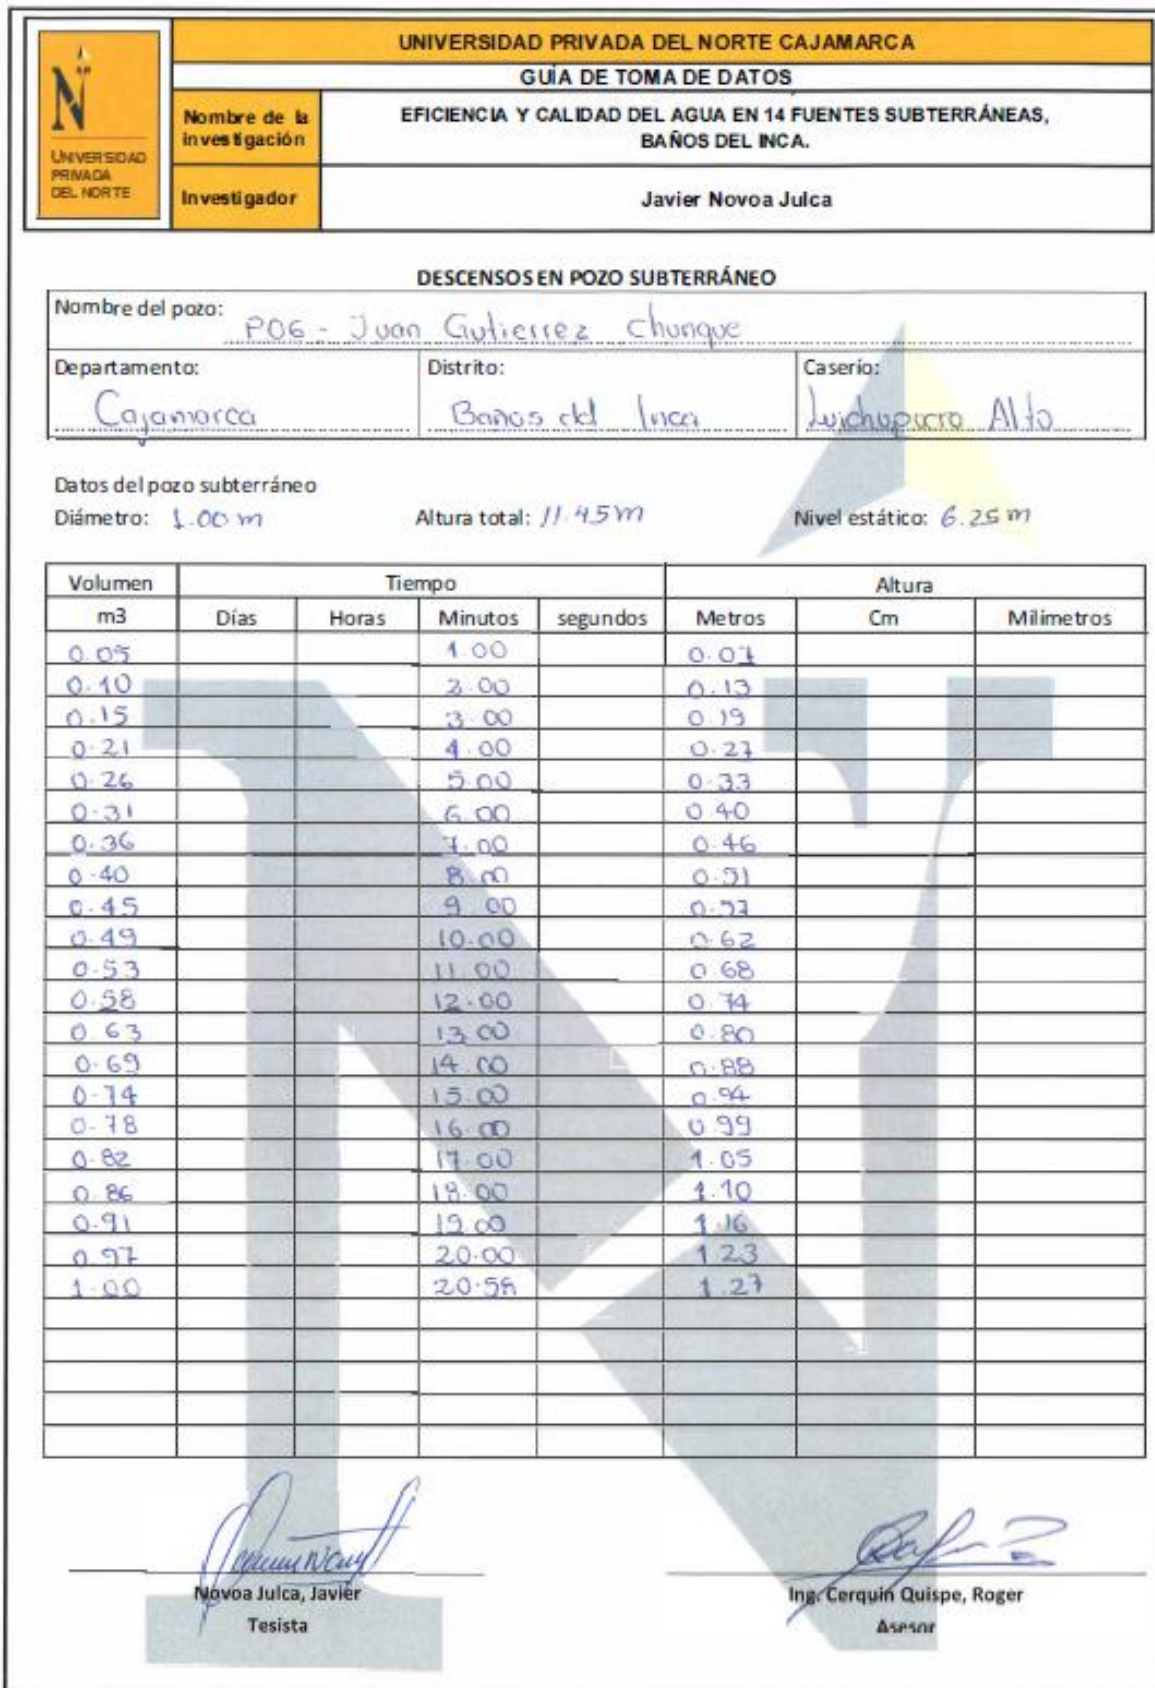 UNIVERSIDAD PRIVADA DEL NORTE
UNIVERSIDAD PRIVADA DEL NORTE CAJAMARCA
GUÍA DE TOMA DE DATOS
Nombre de la investigación
EFICIENCIA Y CALIDAD DEL AGUA EN 14 FUENTES SUBTERRÁNEAS,
BAÑOS DEL INCA.
Investigador
Javier Novoa Julca
DESCENSOS EN POZO SUBTERRÁNEO
Nombre del pozo: P06 - Juan Gutierrez Chunque
Departamento: Distrito: Caserío:
Cajamarca Baños del Inca Alto
Datos del pozo subterráneo
Diámetro: 1.00 m Altura total: 11.45 m Nivel estático: 6.25 m
Volumen Tiempo Altura
m3 Días Horas Minutos segundos Metros Cm Milimetros
0.05 1.00 0.07
0.10 2.00 0.13
0.15 3.00 0.19
0.21 4.00 0.27
0.26 5.00 0.33
0.31 6.00 0.40
0.36 7.00 0.46
0.40 8.00 0.51
0.45 9.00 0.57
0.49 10.00 0.62
0.53 11.00 0.68
0.58 12.00 0.74
0.63 13.00 0.80
0.69 14.00 0.88
0.74 15.00 0.94
0.78 16.00 0.99
0.82 17.00 1.05
0.86 18.00 1.10
0.91 19.00 1.16
0.97 20.00 1.23
1.00 20.58 1.27
Novoa Julca, Javier
Tesista
Ing. Cerquin Quispe, Roger
Asesor